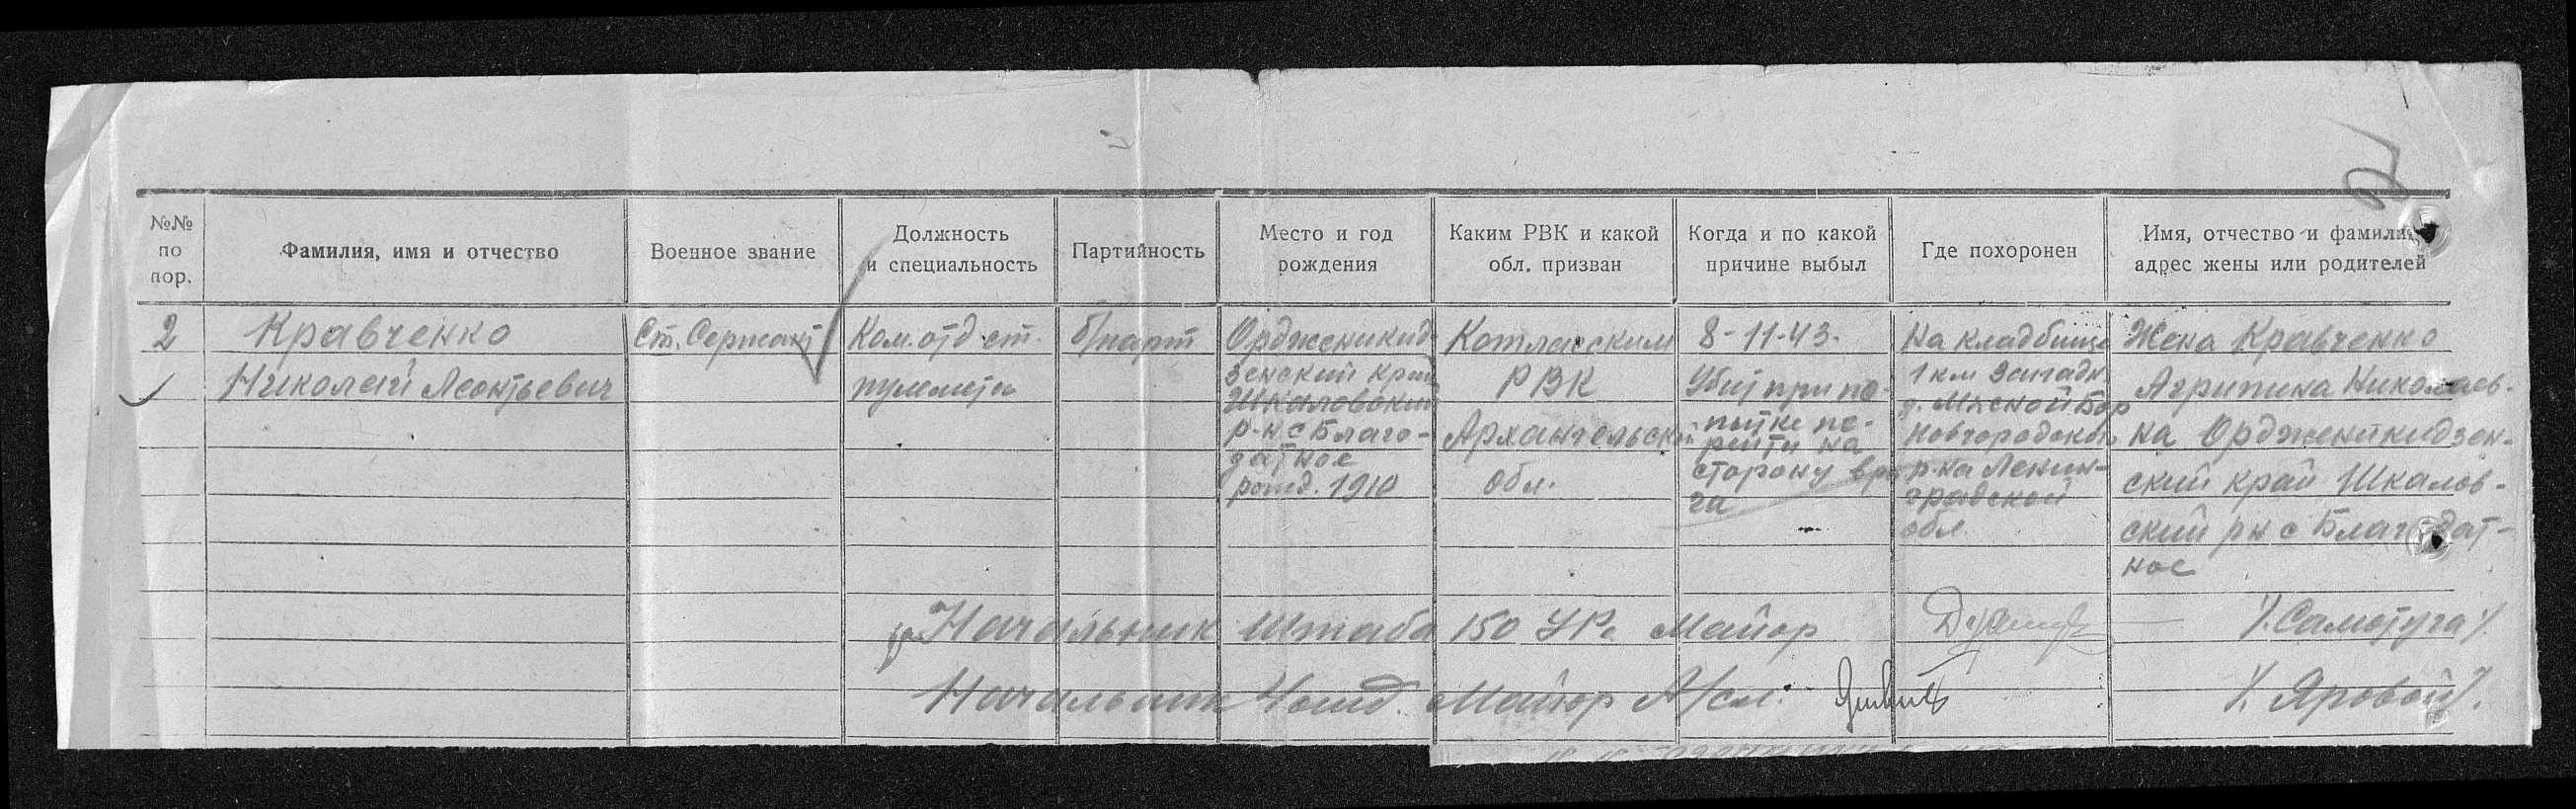 №№ по пор.
Фамилия, имя и отчество
Военное звание
Должность и специальность
Партийность
Место и год рождения
Каким РВК и какой обл. призван
Когда и по какой причине выбыл
Где похоронен
Имя, отчество и фамилия, адрес жены или родителей
2
Кравченко
Николай Леонтьевич
Ст. Сержант
Ком. отд. ст.
пулемета
б/парт
Орджоникид-
зенский край
Шкаловский
р-н с Благо-
датное
рожд. 1910
Котласским
РВК
Архангельской
обл.
8-11-43.
Убит при по-
пытке пе-
рейти на
сторону вра-
га
На кладбище
1 км Западн.
д. Мясной Бор
Новгородского
р-на Ленин-
градской
обл.
Жена Кравченко
Агрипина Николаев-
на Орджоникидзен-
ский край Шкалов-
ский рн с Благодат-
ное
Начальник Штаба 150 УРа Майор /Самотуга/
Начальник 4 отд. Майор А/сл. /Яровой/.